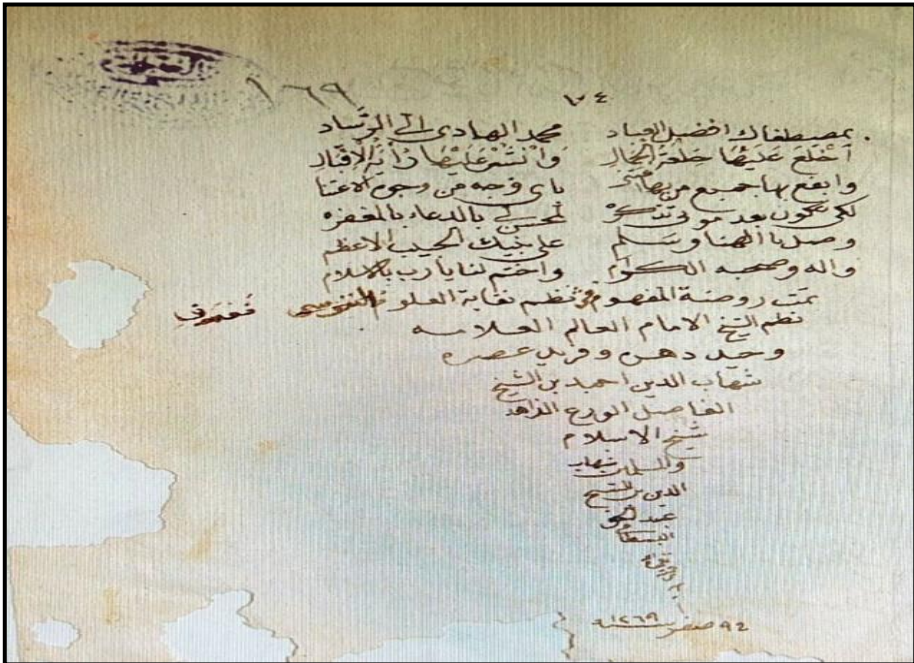 ١٦٩
٧٤
بمصطفاك افضل العباد محمد الهادي الى الرشاد
اخلع عليها خلعة الجمال وانشر عليها راية الاقبال
وانفع بها جميع من بها باى وجه من وجوه الاعتنا
لكى تكون بعد موتى تذكره لمحسن لى بالدعاء بالمغفره
وصل يا الهنا وسلم على نبيك الحبيب الاعظم
واله وصحبه الكرام واختم لنا يا رب بالاسلام
تمت روضة المفهوم فى نظم نقاية العلوم
نظم الشيخ الامام العالم العلامه
وحيد دهره وفريد عصره
شهاب الدين احمد بن الشيخ
الفاضل الورع الزاهد
شيخ الاسلام
والمسلمين شهاب
الدين بن الشيخ
عبد الحق
السنباطى
صفر سنه ١٢٦٩